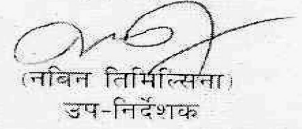 (नबिन तिमिल्सिना)
उप-निर्देशक